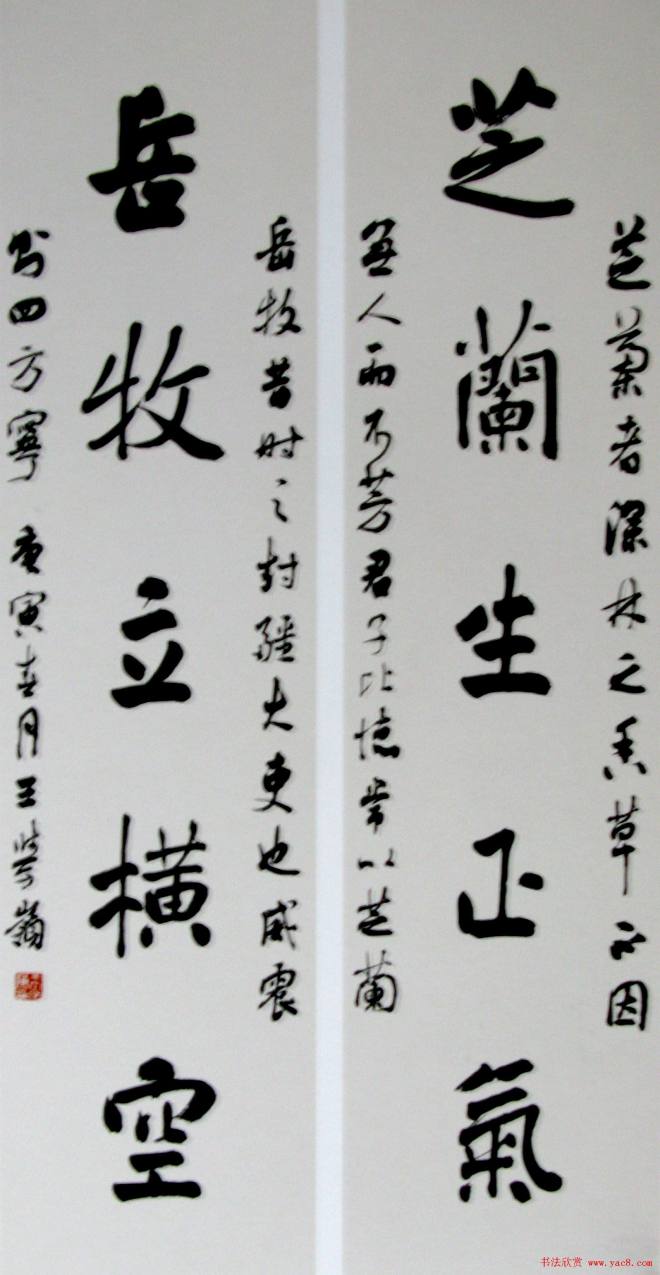 芝蘭者深林之香草不因
芝蘭生正氣
無人而不芳君子比德常以芝蘭
岳牧昔時之封疆大吏也威震
岳牧立橫空
則四方寧 庚寅春月王學嶺
书法欣赏 www.yac8.com